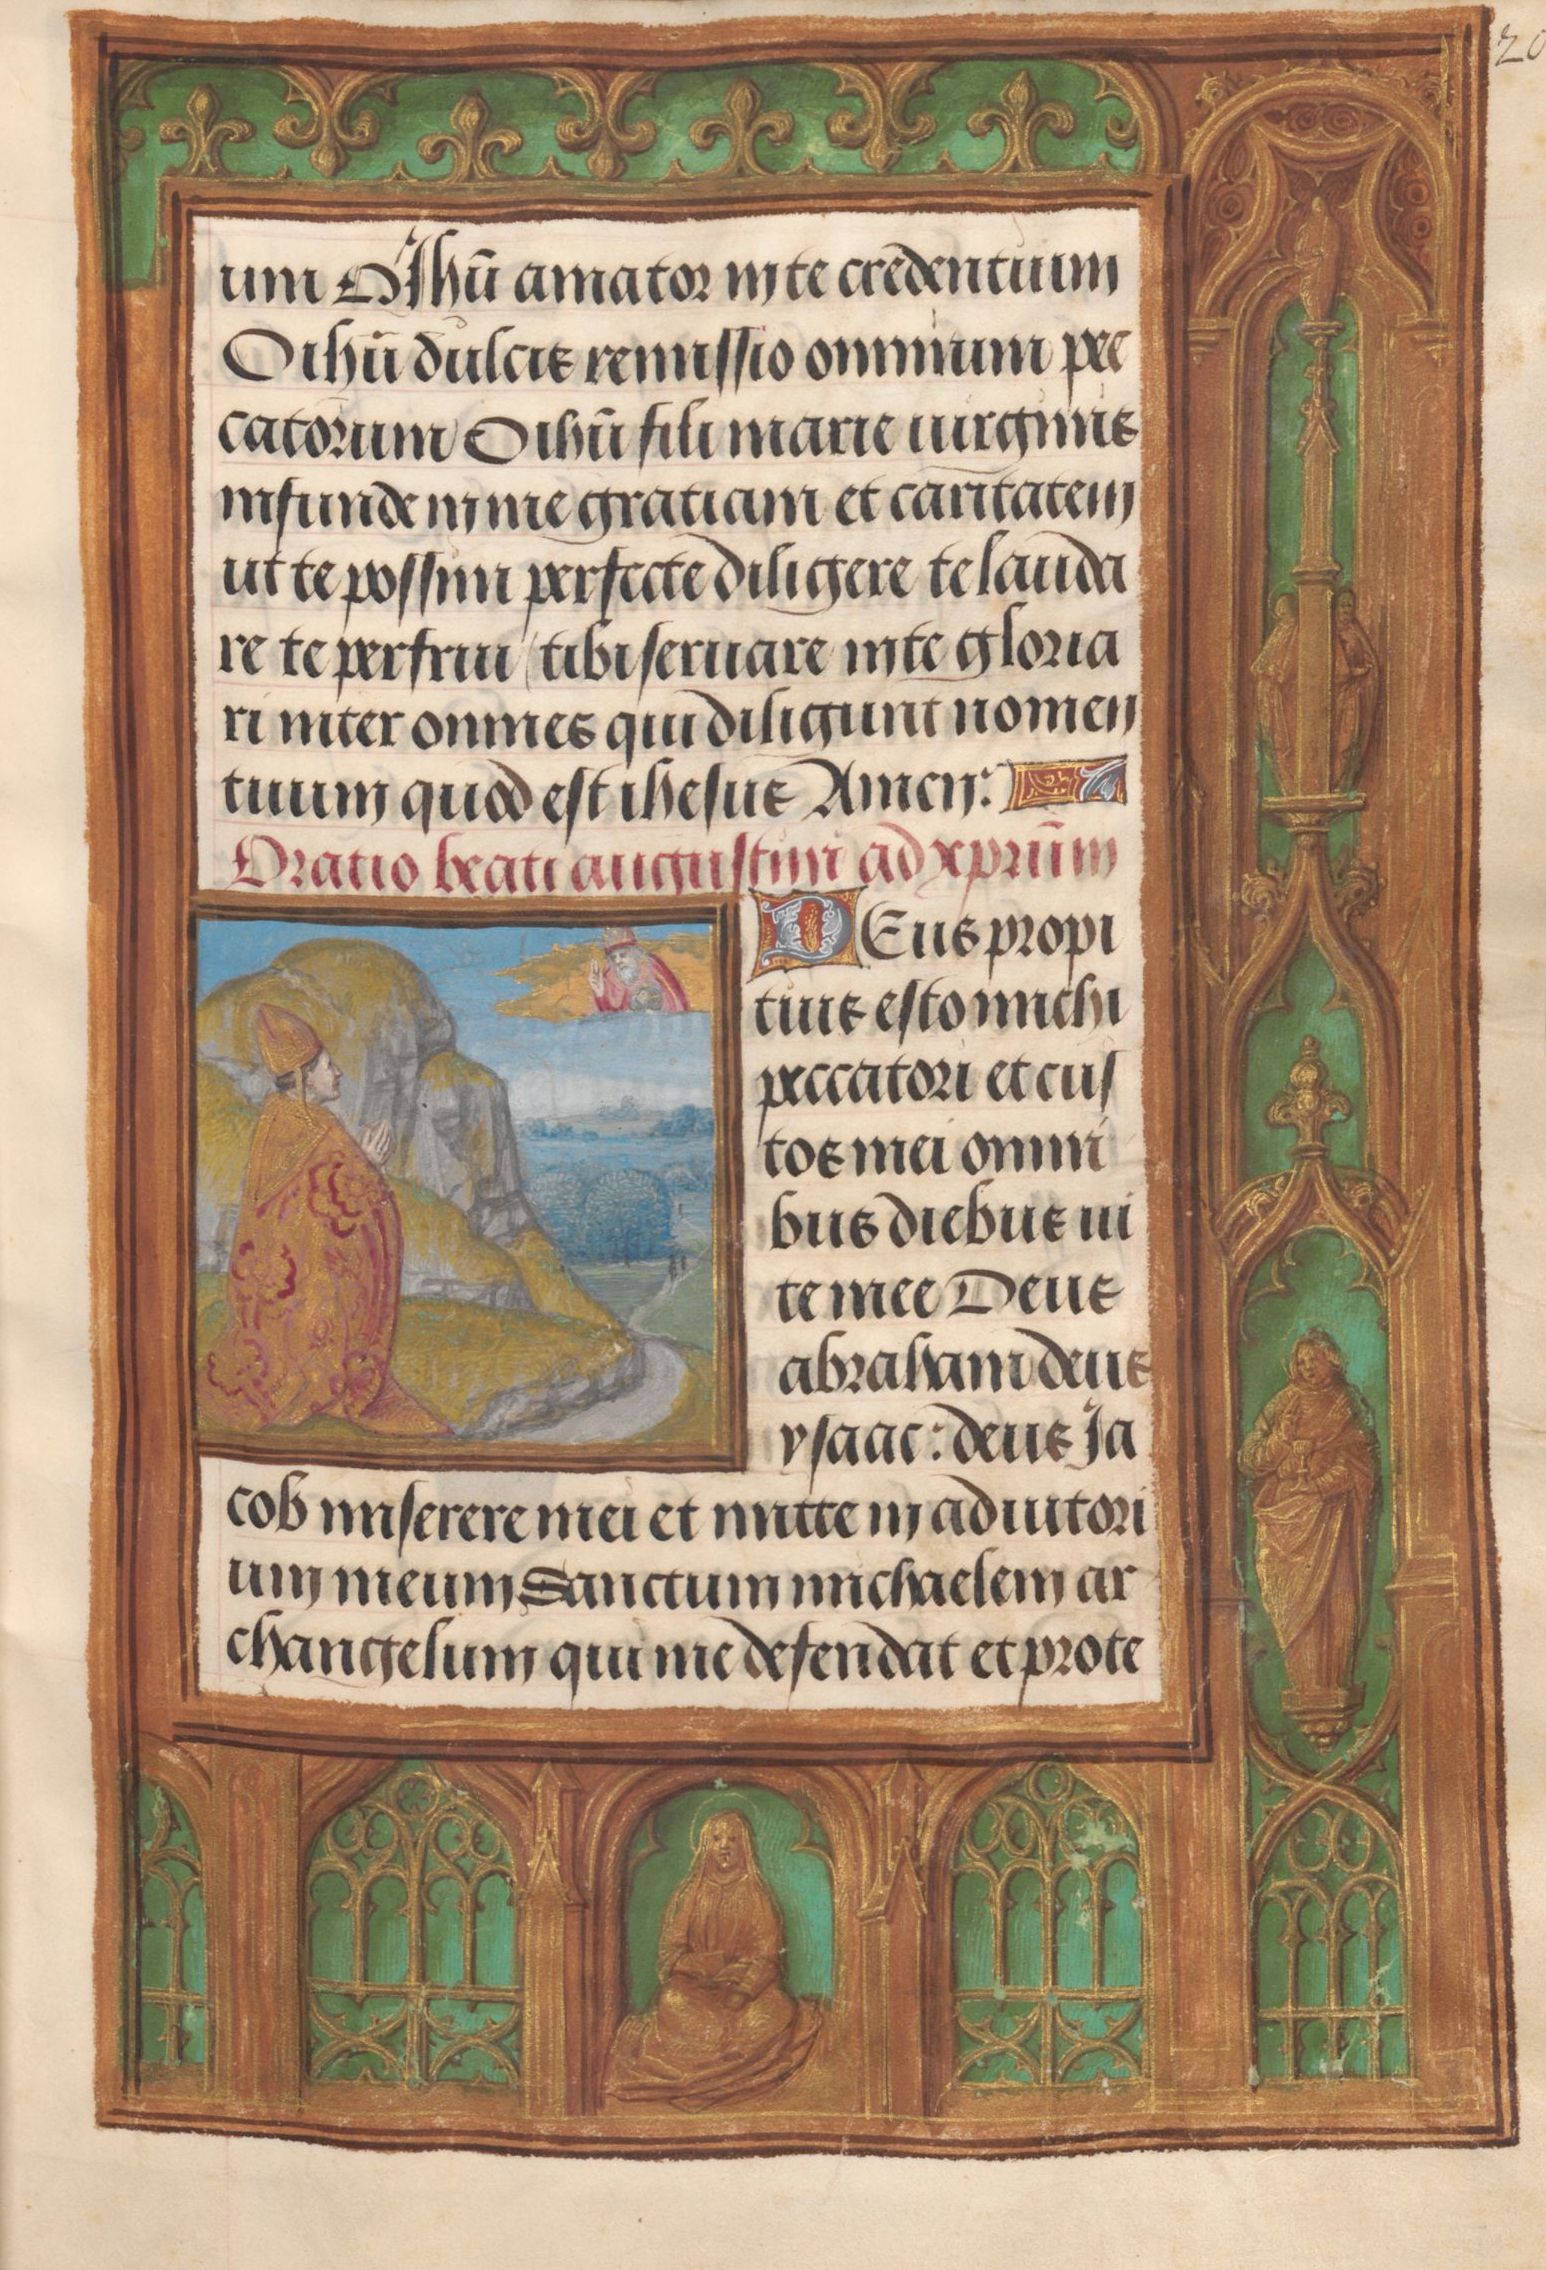 20
um O Ihū amator in te credentium
O ihū dulcis remissio omnium pec
catorum O ihū fili marie uirginis
infunde in me gratiam et caritatem
ut te possim perfecte diligere te lauda
re te perfrui tibi seruare in te gloria
ri inter omnes qui diligunt nomen
tuum quod est ihesus Amen:
Oratio beati augustini ad xprm̄
DEus propi
tius esto michi
peccatori et cus
tos mei omni
bus diebus ui
te mee Deus
abraham deus
ysaac: deus Ja
cob miserere mei et mitte in adiutori
um meum Sanctum michaelem ar
changelum qui me defendat et prote